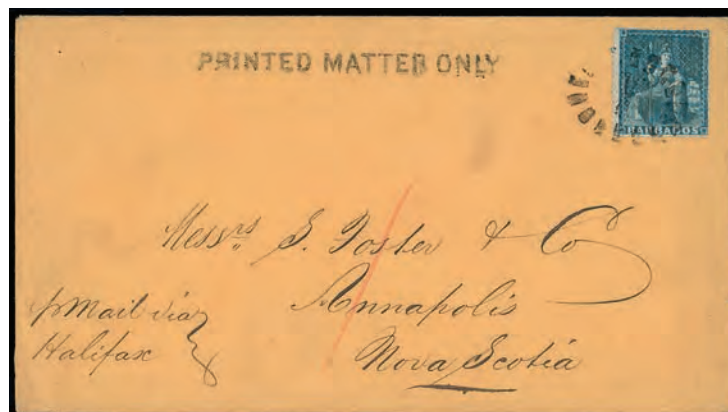 PRINTED MATTER ONLY
BARBADOS
Messrs S. Foster & Co
Annapolis
Nova Scotia
p Mail via
Halifax